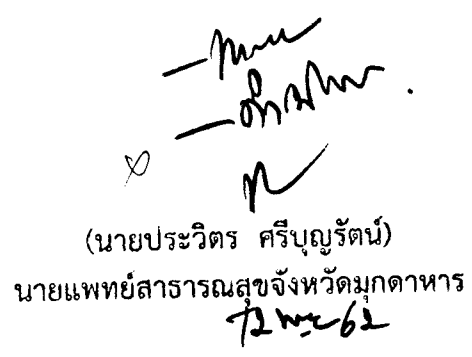 - ทราบ
(นายประวิตร ศรีบุญรัตน์)
นายแพทย์สาธารณสุขจังหวัดมุกดาหาร
12 พ.ย. 62